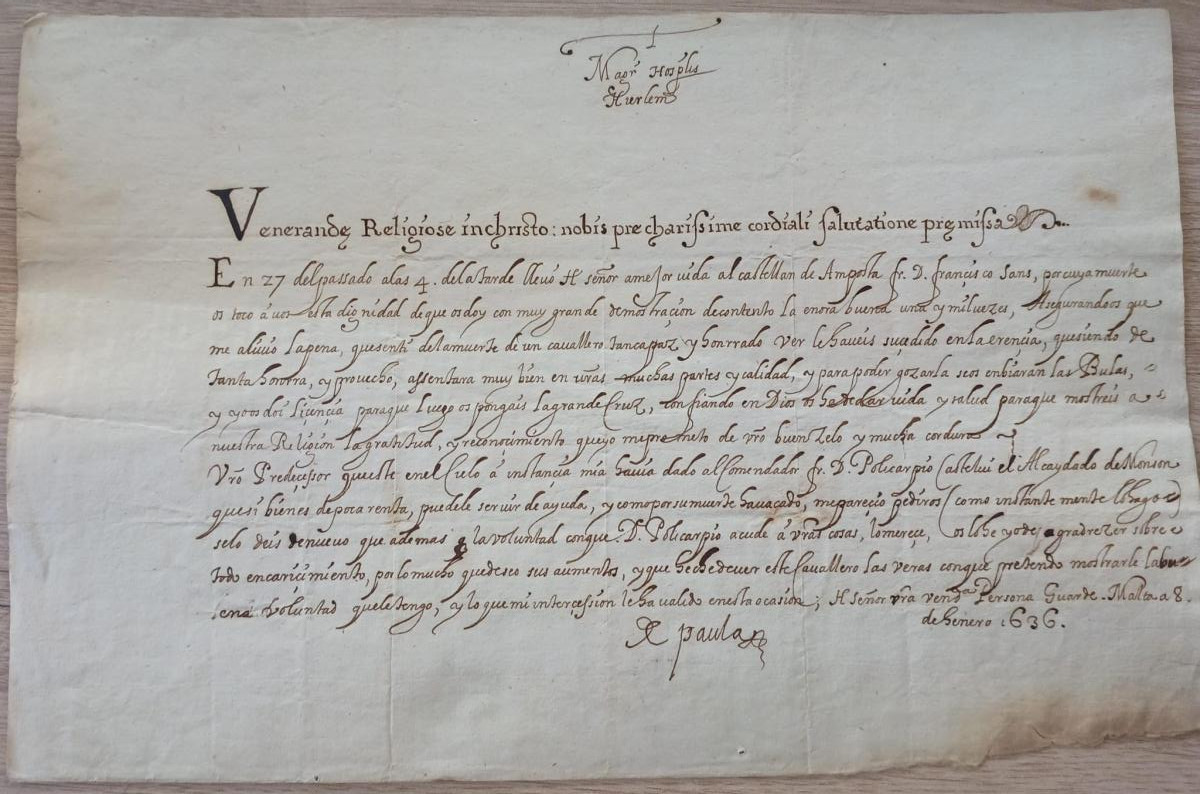 Magr Hosplis
Hierlem
Venerande Religiose in christo: nobis precharissime cordiali salutatione premissa
En 27 del passado a las 4. de la tarde llevo El señor a mejor vida al castellan de Amposta fr. D. francisco Sans, por cuya muerte
os toco á vos esta dignidad de que os doy con muy grande demostraçion de contento la enora buena una y mil vezes, Asegurandoos que
me alivio la pena, que senti de la muerte de un cavallero tan capaz y honrrado ver le haveis suçedido en la erençia, que siendo de
tanta honrra, y provecho, assentara muy bien en vras muchas partes y calidad, y para poder gozarla se os enbiaran las Bulas,
y yo os doy liçençia para que luego os pongais la grande Cruz, confiando en Dios os ha de dar vida y salud para que mostreis a
nuestra Religion la gratitud, y reconoçimiento que yo me prometo de vro buen Zelo y mucha cordura
Vro Predeçessor que este en el Cielo á instançia mia havia dado al Comendador fr. D. Policarpio Castelui el Alcaydado de Monson
que si bien es de poca renta, puedele servir de ayuda, y como por su muerte ha vacado, me pareçio pediros (como instantemente lo hago)
se lo deis de nuevo que ademas la voluntad con que D. Policarpio acude á vras cosas, lo mereçe, os lo he yo de agradezer sobre
todo encarecimiento, por lo mucho que deseo sus aumentos, y que heche de ver este Cavallero las veras con que pretendo mostrarle la bu
ena voluntad que le tengo, y lo que mi interçession le ha valido en esta ocasion; El señor vra vend.a Persona Guarde. Malta a 8.
de henero 1636.
paula